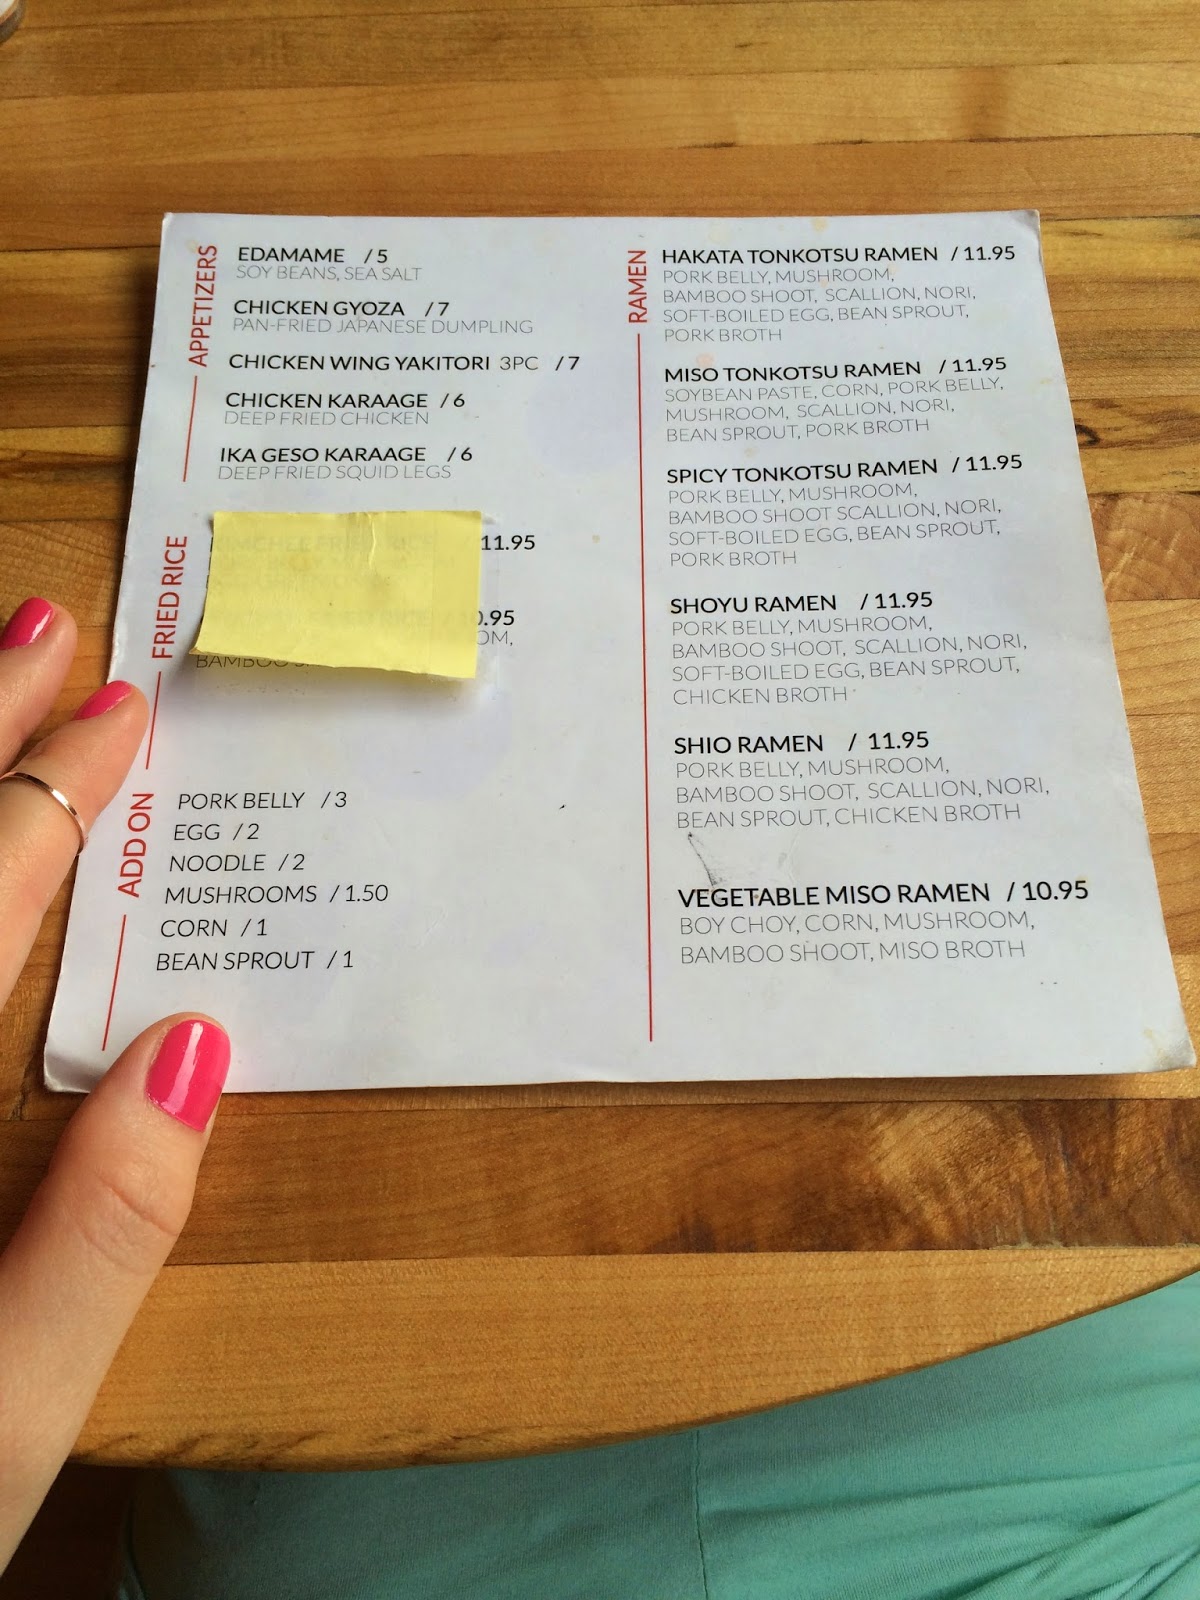 APPETIZERS
EDAMAME / 5
SOY BEANS, SEA SALT
CHICKEN GYOZA / 7
PAN-FRIED JAPANESE DUMPLING
CHICKEN WING YAKITORI 3PC / 7
CHICKEN KARAAGE / 6
DEEP FRIED CHICKEN
IKA GESO KARAAGE / 6
DEEP FRIED SQUID LEGS
FRIED RICE
KIMCHEE FRIED RICE / 11.95
FRIED RICE / 10.95
BAMBOO
ADD ON
PORK BELLY / 3
EGG / 2
NOODLE / 2
MUSHROOMS / 1.50
CORN / 1
BEAN SPROUT / 1
RAMEN
HAKATA TONKOTSU RAMEN / 11.95
PORK BELLY, MUSHROOM,
BAMBOO SHOOT, SCALLION, NORI,
SOFT-BOILED EGG, BEAN SPROUT,
PORK BROTH
MISO TONKOTSU RAMEN / 11.95
SOYBEAN PASTE, CORN, PORK BELLY,
MUSHROOM, SCALLION, NORI,
BEAN SPROUT, PORK BROTH
SPICY TONKOTSU RAMEN / 11.95
PORK BELLY, MUSHROOM,
BAMBOO SHOOT SCALLION, NORI,
SOFT-BOILED EGG, BEAN SPROUT,
PORK BROTH
SHOYU RAMEN / 11.95
PORK BELLY, MUSHROOM,
BAMBOO SHOOT, SCALLION, NORI,
SOFT-BOILED EGG, BEAN SPROUT,
CHICKEN BROTH
SHIO RAMEN / 11.95
PORK BELLY, MUSHROOM,
BAMBOO SHOOT, SCALLION, NORI,
BEAN SPROUT, CHICKEN BROTH
VEGETABLE MISO RAMEN / 10.95
BOY CHOY, CORN, MUSHROOM,
BAMBOO SHOOT, MISO BROTH